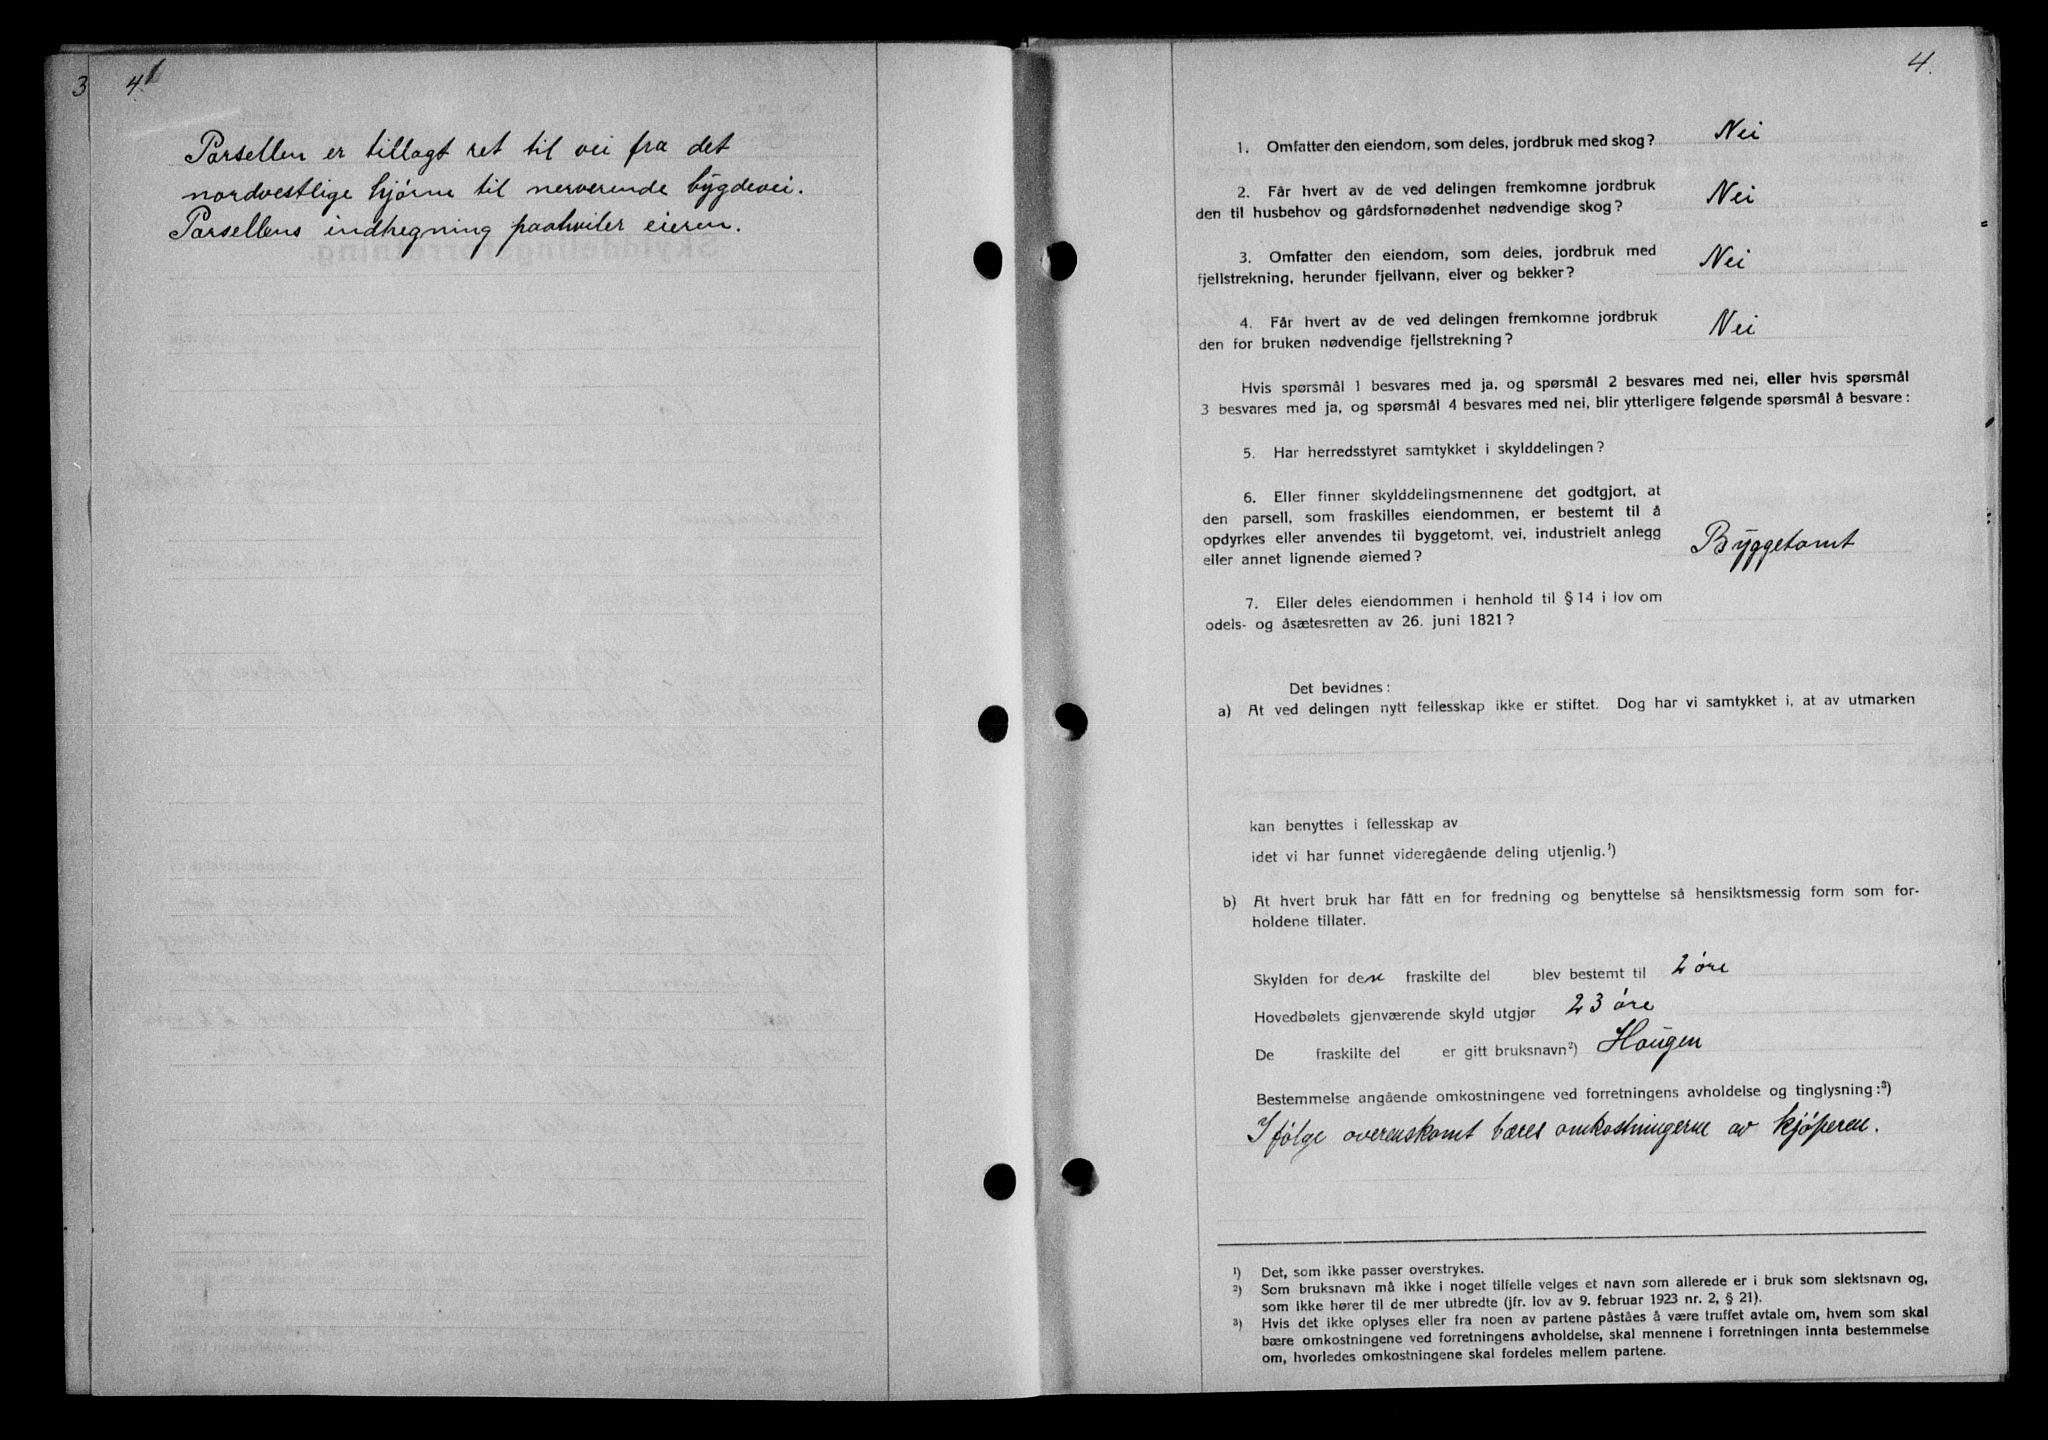 3 4
Parsellen er tillagt ret til vei fra det
nordvestlige hjörne til nerverende bygdevei.
Parsellens indhegning paahviler eieren.
4.
1. Omfatter den eiendom, som deles, jordbruk med skog? Nei
2. Får hvert av de ved delingen fremkomne jordbruk
den til husbehov og gårdsfornødenhet nødvendige skog? Nei
3. Omfatter den eiendom, som deles, jordbruk med
fjellstrekning, herunder fjellvann, elver og bekker? Nei
4. Får hvert av de ved delingen fremkomne jordbruk
den for bruken nødvendige fjellstrekning? Nei
Hvis spørsmål 1 besvares med ja, og spørsmål 2 besvares med nei, eller hvis spørsmål
3 besvares med ja, og spørsmål 4 besvares med nei, blir ytterligere følgende spørsmål å besvare:
5. Har herredsstyret samtykket i skylddelingen?
6. Eller finner skylddelingsmennene det godtgjort, at
den parsell, som fraskilles eiendommen, er bestemt til å
opdyrkes eller anvendes til byggetomt, vei, industrielt anlegg
eller annet lignende øiemed? Byggetomt
7. Eller deles eiendommen i henhold til § 14 i lov om
odels- og åsætesretten av 26. juni 1821?
Det bevidnes:
a) At ved delingen nytt fellesskap ikke er stiftet. Dog har vi samtykket i, at av utmarken
kan benyttes i fellesskap av
idet vi har funnet videregående deling utjenlig.¹)
b) At hvert bruk har fått en for fredning og benyttelse så hensiktsmessig form som for-
holdene tillater.
Skylden for den fraskilte del blev bestemt til 2 öre
Hovedbølets gjenværende skyld utgjør 23 öre
De fraskilte del er gitt bruksnavn²) Haugen
Bestemmelse angående omkostningene ved forretningens avholdelse og tinglysning:³)
I fölge overenskomt bæres omkostningerne av kjöperen.
¹) Det, som ikke passer overstrykes.
²) Som bruksnavn må ikke i noget tilfelle velges et navn som allerede er i bruk som slektsnavn og,
som ikke hører til de mer utbredte (jfr. lov av 9. februar 1923 nr. 2, § 21).
³) Hvis det ikke oplyses eller fra noen av partene påståes å være truffet avtale om, hvem som skal
bære omkostningene ved forretningens avholdelse, skal mennene i forretningen innta bestemmelse
om, hvorledes omkostningene skal fordeles mellem partene.